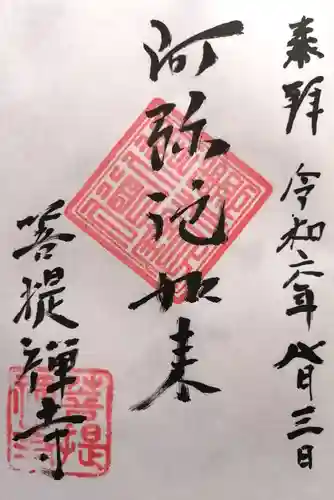 奉拝
令和六年八月三日
阿弥陀如来
菩提禅寺